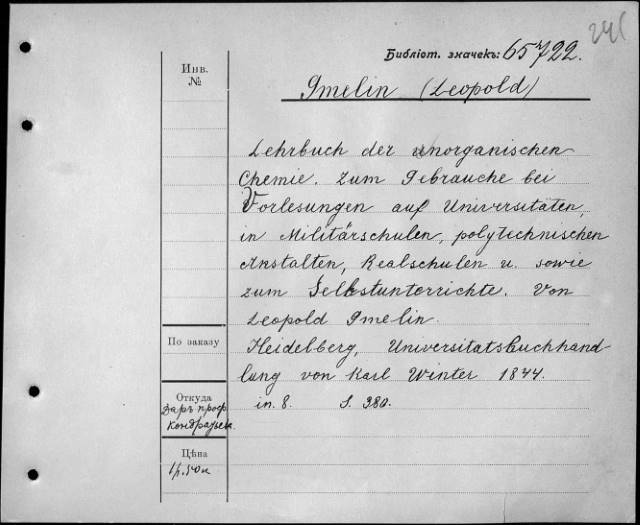 Библіот. значекъ: 65722.
Инв.
№
Gmelin (Leopold)
Lehrbuch der unorganischen
Chemie. Zum Gebrauche bei
Vorlesungen auf Universitäten,
in Militärschulen, polytechnischen
Anstalten, Realschulen u. sowie
zum Selbstunterrichte. Von
Leopold Gmelin.
По заказу
Heidelberg, Universitätsbuchhand
lung von Karl Winter 1844.
Откуда
Даръ проф
in. 8. S. 380.
Цѣна
1р. 50к